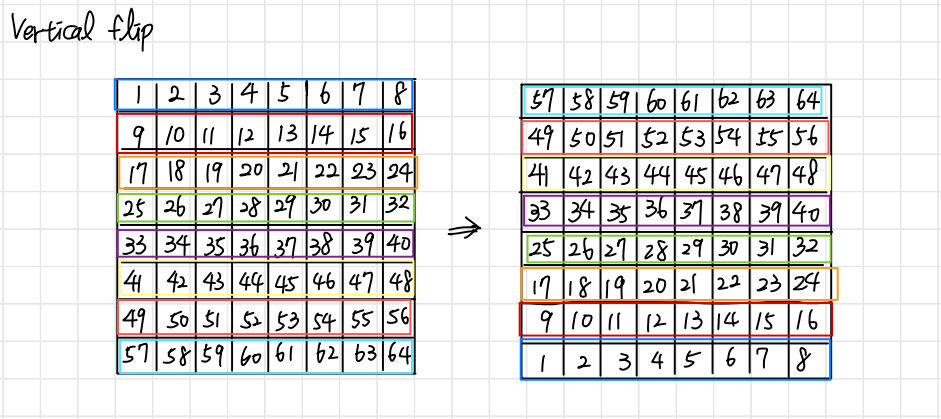 Vertical flip
1 2 3 4 5 6 7 8
9 10 11 12 13 14 15 16
17 18 19 20 21 22 23 24
25 26 27 28 29 30 31 32
33 34 35 36 37 38 39 40
41 42 43 44 45 46 47 48
49 50 51 52 53 54 55 56
57 58 59 60 61 62 63 64
⇒
57 58 59 60 61 62 63 64
49 50 51 52 53 54 55 56
41 42 43 44 45 46 47 48
33 34 35 36 37 38 39 40
25 26 27 28 29 30 31 32
17 18 19 20 21 22 23 24
9 10 11 12 13 14 15 16
1 2 3 4 5 6 7 8